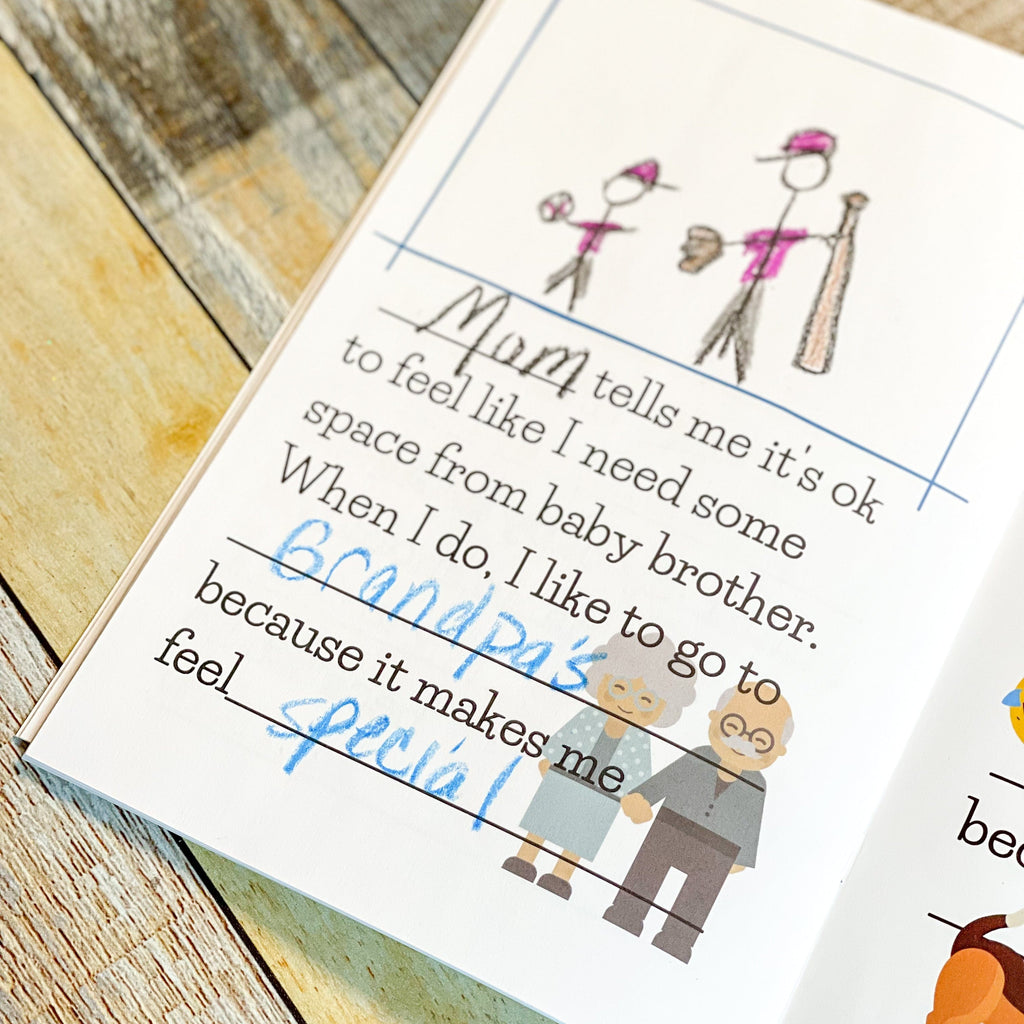 Mom tells me it's ok
to feel like I need some
space from baby brother.
When I do, I like to go to
Grandpa's
because it makes me
feel special